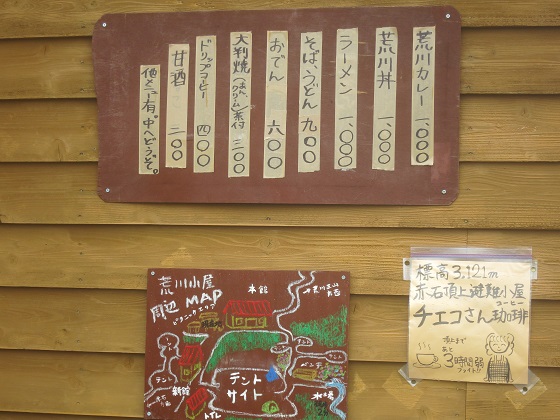 荒川カレー 一、〇〇〇
荒川丼 一、〇〇〇
ラーメン 一、〇〇〇
そば、うどん 九〇〇
おでん 六〇〇
大判焼(あん、クリーム)茶付 三〇〇
ドリップコーヒー 四〇〇
甘酒 二〇〇
他メニュー有。中へどうぞ。
荒川小屋
周辺 MAP
ピクニックエリア
本館
テント
テント
サイト
新館
トイレ
テント
テント
ベンチ
水場
標高3,121m
赤石頂上避難小屋
コーヒー
チエコさん珈琲
頂上まで
あと
3時間弱
ファイト!!